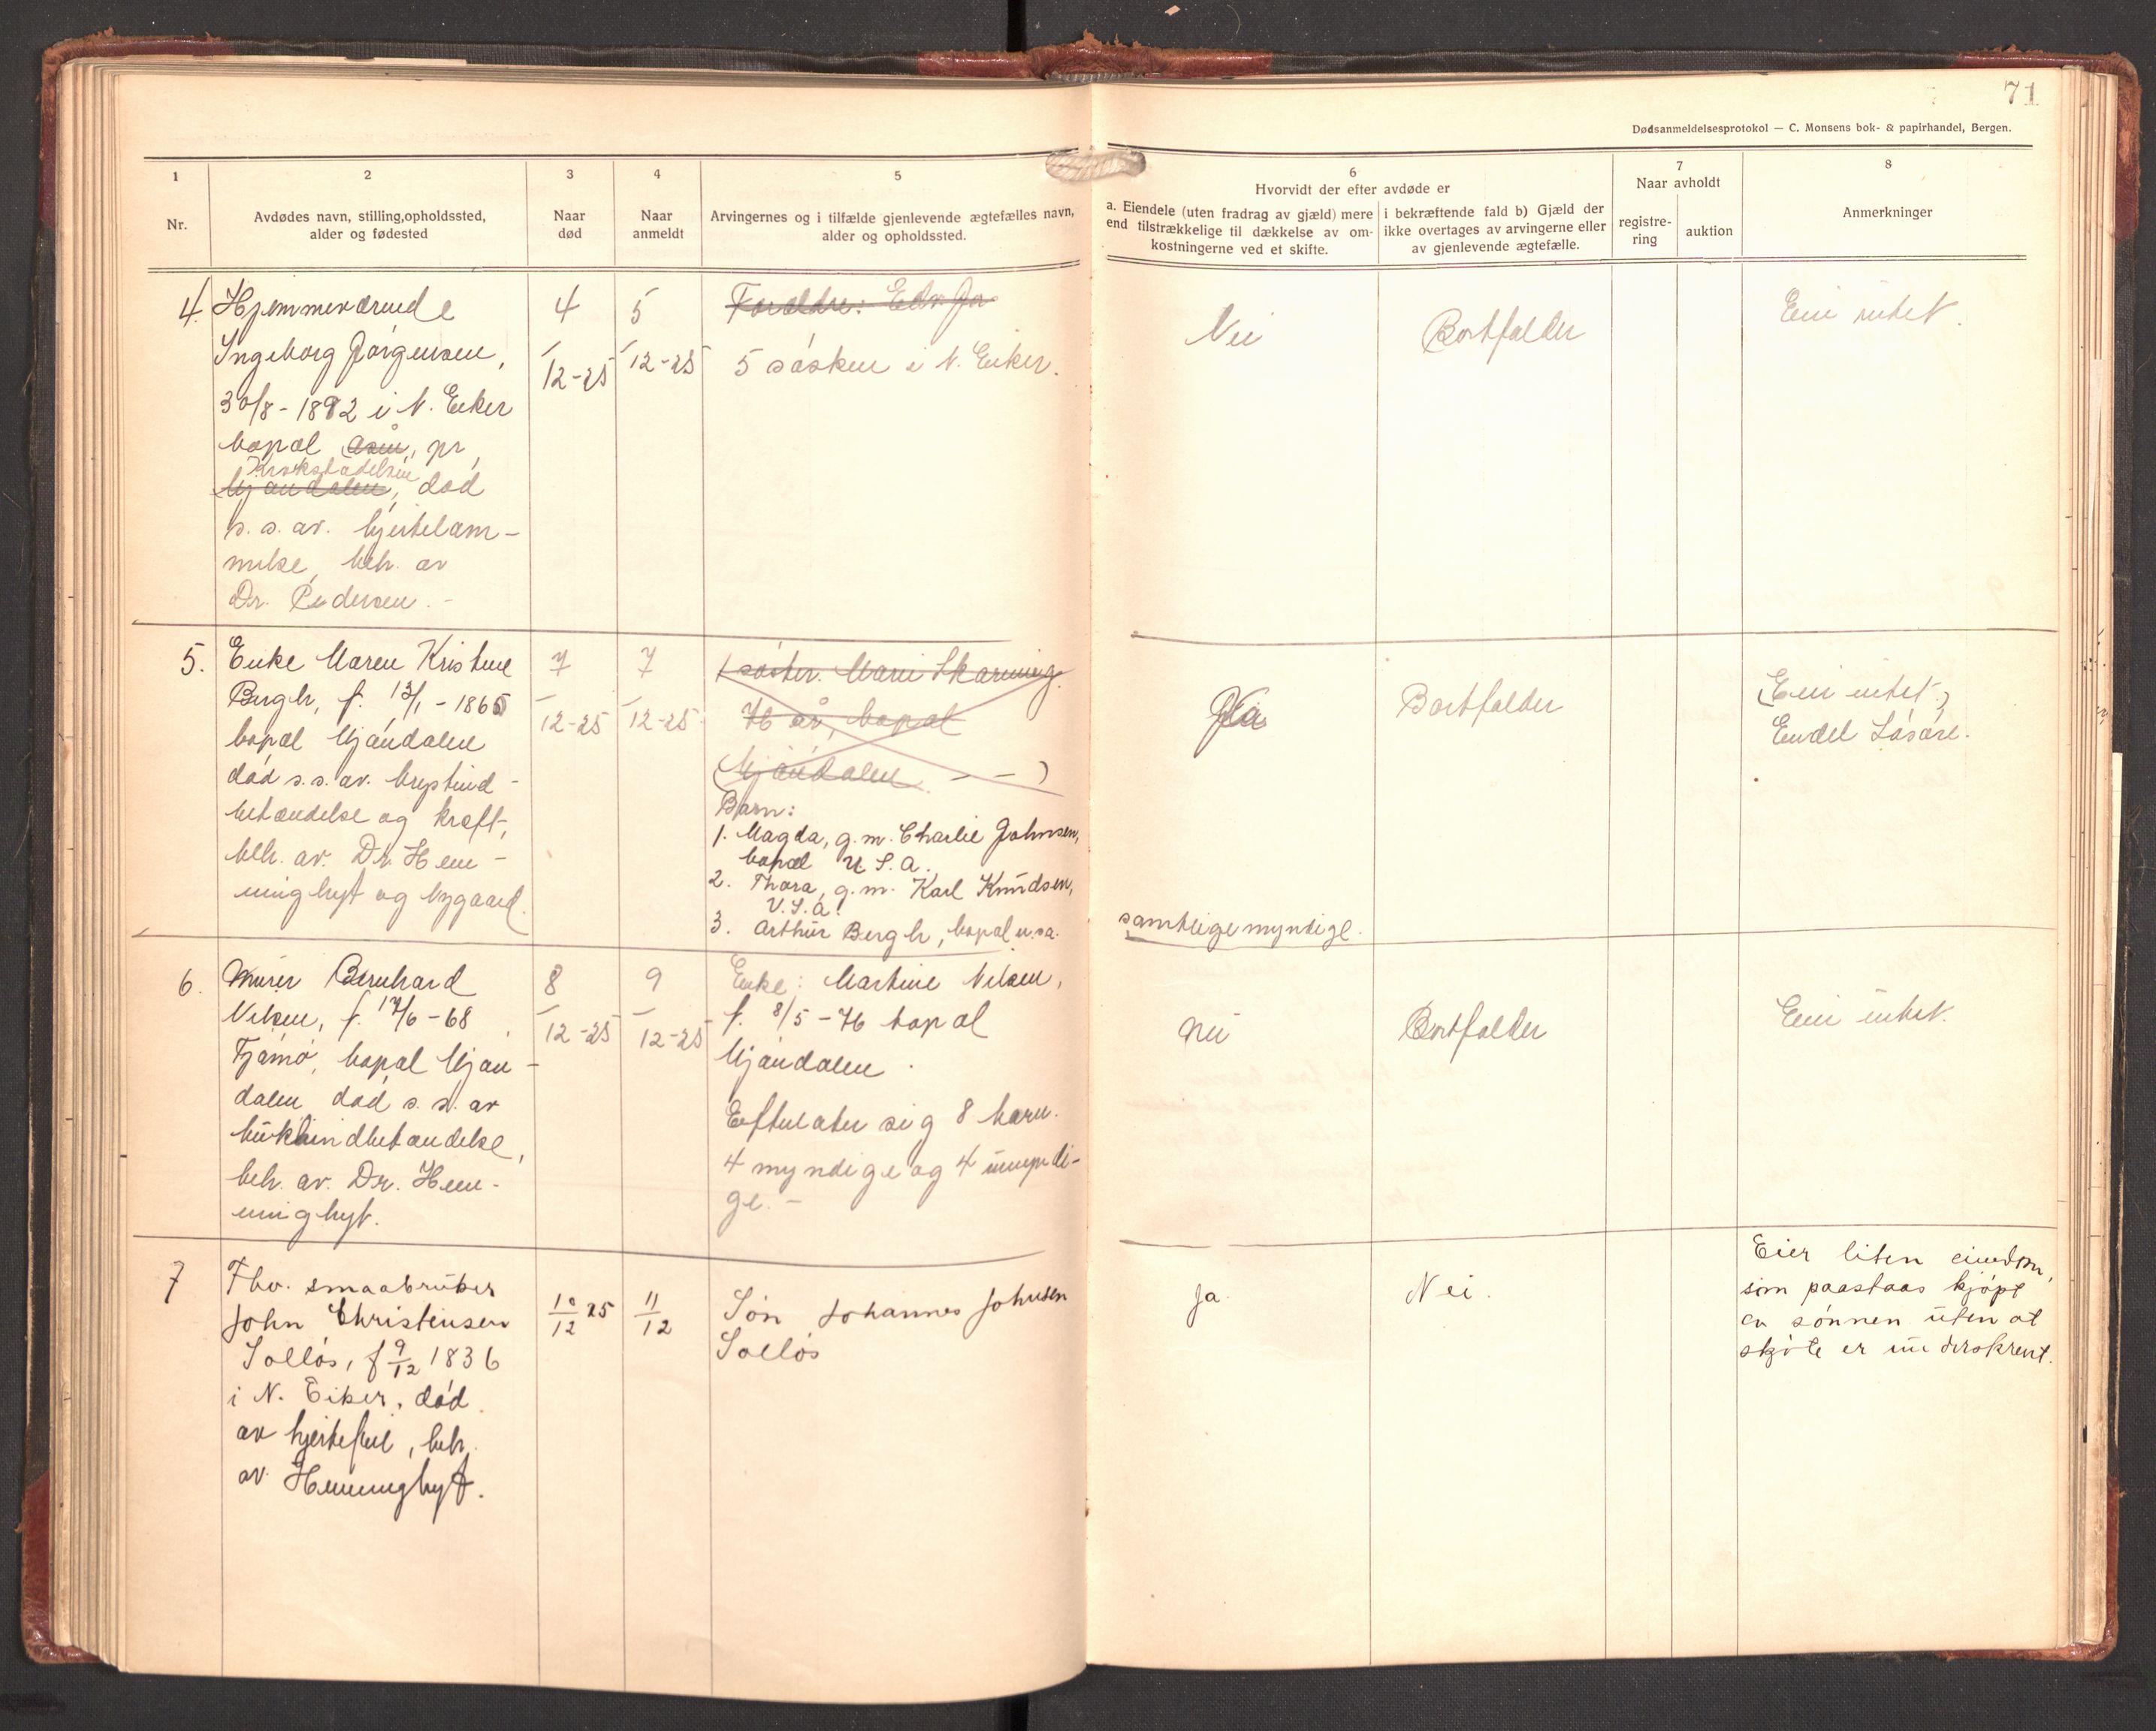 71
Dødsanmeldelsesprotokol — C. Monsens bok- & papirhandel, Bergen.
1
Nr.
2
Avdødes navn, stilling, opholdssted,
alder og fødested
3
Naar
død
4
Naar
anmeldt
5
Arvingernes og i tilfælde gjenlevende ægtefælles navn,
alder og opholdssted.
6
Hvorvidt der efter avdøde er
a. Eiendele (uten fradrag av gjæld) mere
end tilstrækkelige til dækkelse av om-
kostningerne ved et skifte.
i bekræftende fald b) Gjæld der
ikke overtages av arvingerne eller
av gjenlevende ægtefælle.
7
Naar avholdt
registre-
ring
auktion
8
Anmerkninger
4.
Hjemmeværende
Ingeborg Jørgensen,
30/8 - 1892 i N. Eiker
bopæl Åsen, pr
Krokstadelven
Mjøndalen, død
s. s. av. hjertelam-
melse, beh. av
Dr. Pedersen. -
4
/
12-25
5
/
12-25
Forældre: Edv. Jo
5 søsken i N. Eiker.
Nei
Bortfalder
Eier intet.
5.
Enke Maren Kristine
Bergh, f. 13/1 - 1865
bopæl Mjøndalen
død s. s. av. brysthind-
betændelse og kræft,
beh. av. Dr. Hen-
ninghyt og Nygaard.
7
/
12-25
7
/
12-25.
1 søster. Marie Skarning
76 år, bopæl
(Mjøndalen. - - )
Barn:
1. Magda, g. m. Charlie Johnsen,
bopæl U S. A.
2. Thora, g. m. Karl Knudsen,
U. S. A.
3. Arthur Bergh, bopæl u.sa.
samtlige myndige.
Ja
Bortfalder
(Eier intet)
Endel Løsøre.
6.
Murer Bernhard
Nilsen, f. 17/6 - 68
Tjømø, bopæl Mjøn-
dalen, død s. s. av
bukhindbetændelse,
beh. av. Dr. Hen-
ninghyt.
8
/
12-25
9
/
12-25
Enke: Martine Nilsen,
f. 8/5 - 76 bopæl
Mjøndalen.
Efterlater sig 8 barn.
4 myndige og 4 umyndi-
ge. -
Nei
Bortfalder
Eier intet.
7
Fhv. smaabruker
John Christensen
Solløs, f 9/12 1836
i N. Eiker, død
av hjertefeil, beh.
av. Henninghyt.
10/12 25
11/12
Søn Johannes Johnsen
Solløs
Ja.
Nei.
Eier liten eiendom,
som paastaas kjøpt
av sønnen uten at
skjøte er underskrevt.